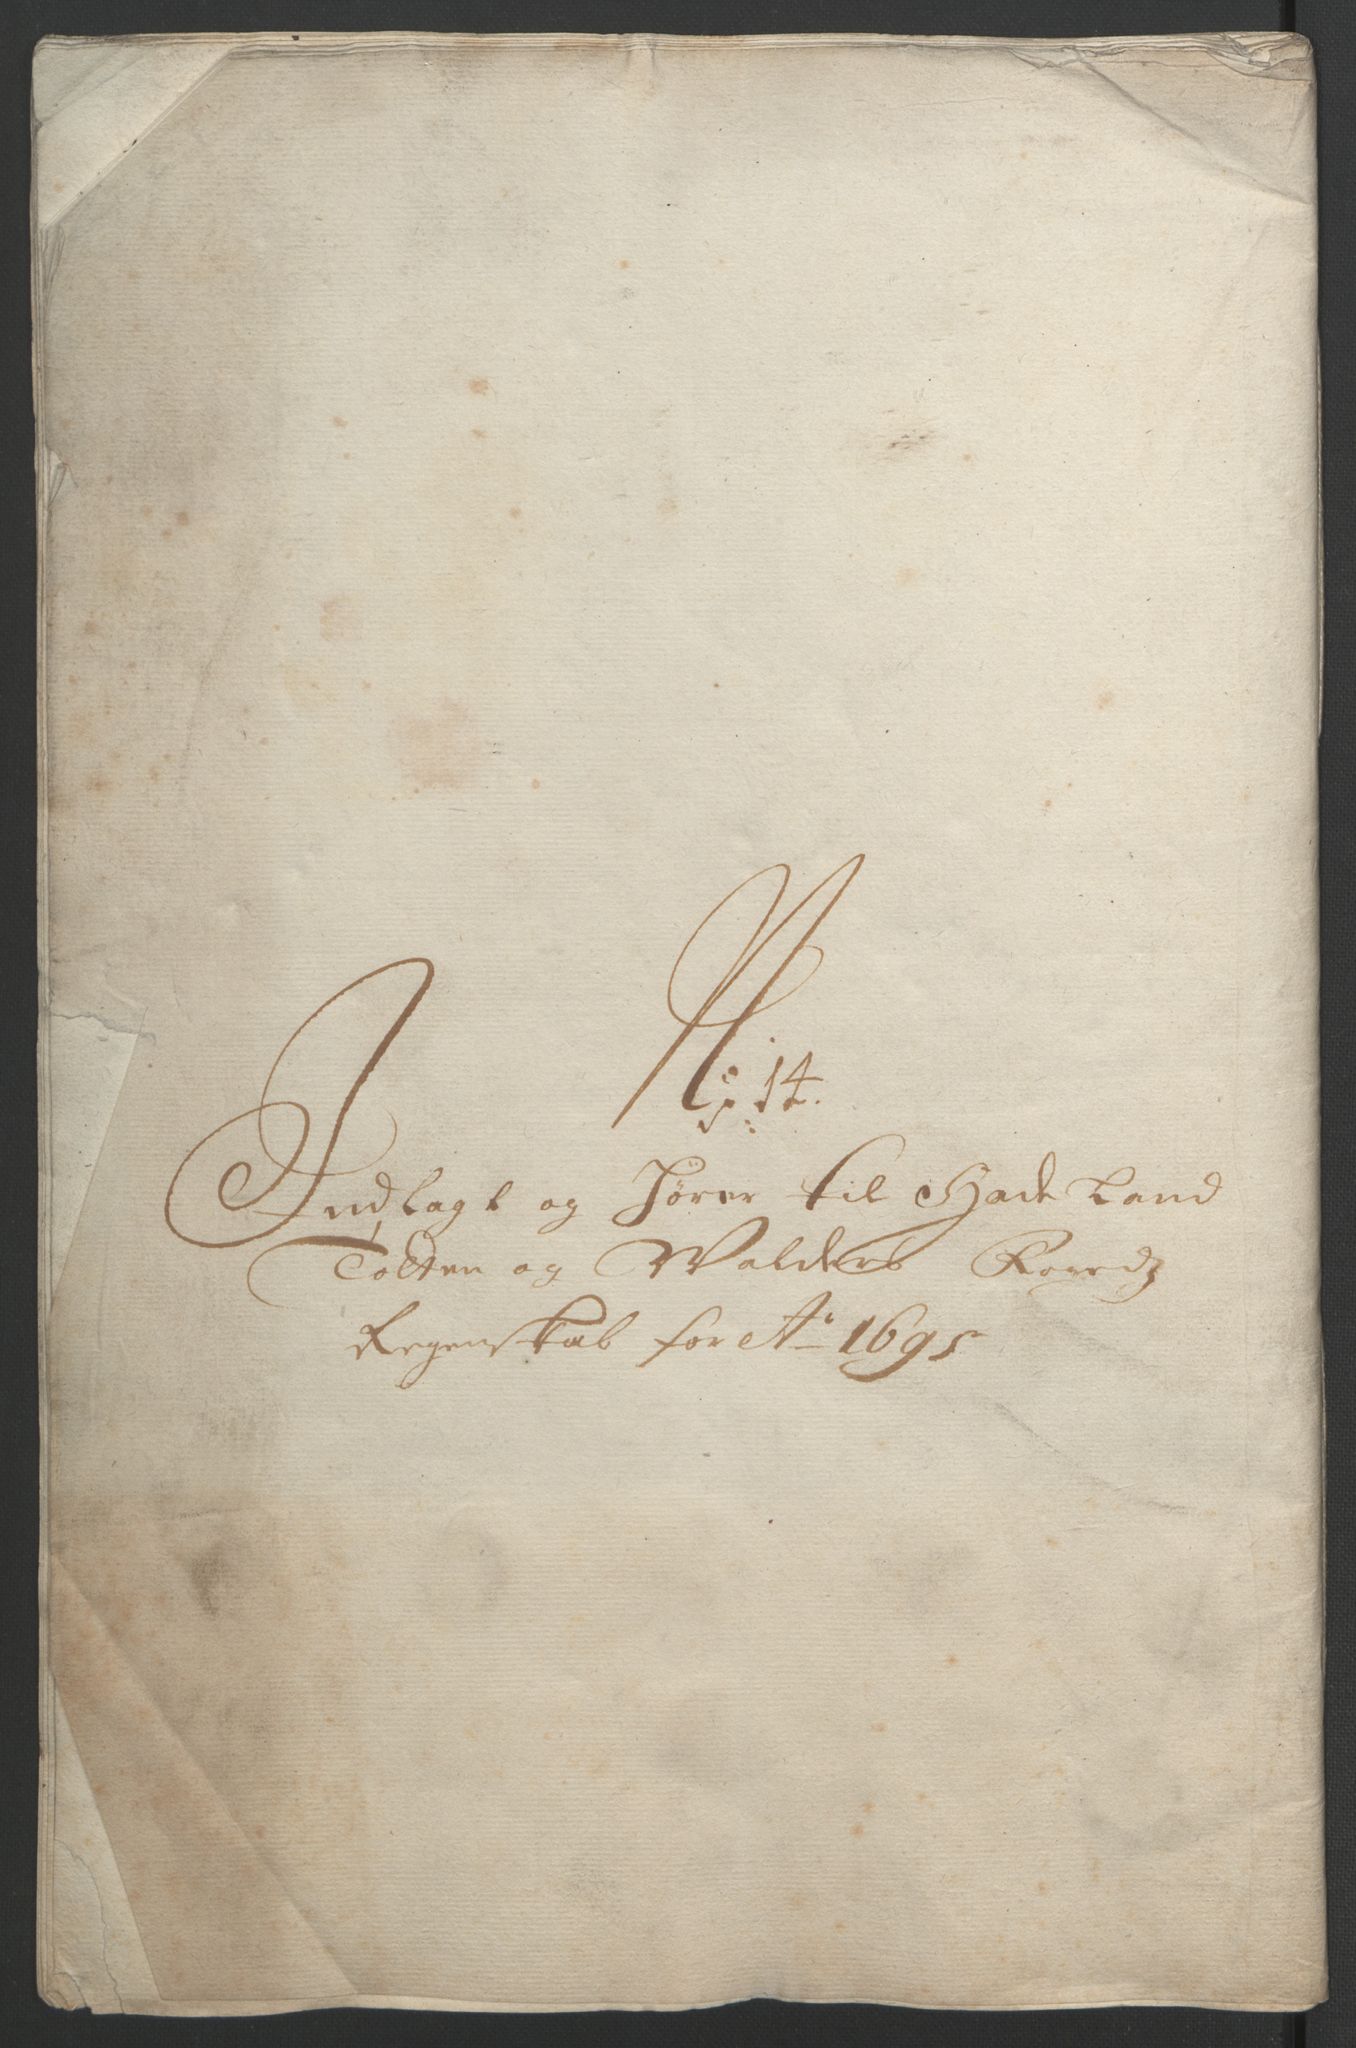 No: 14.
Indlagt og Hører til Hadeland
Totten og Walders
Regenskab for Ao 1695